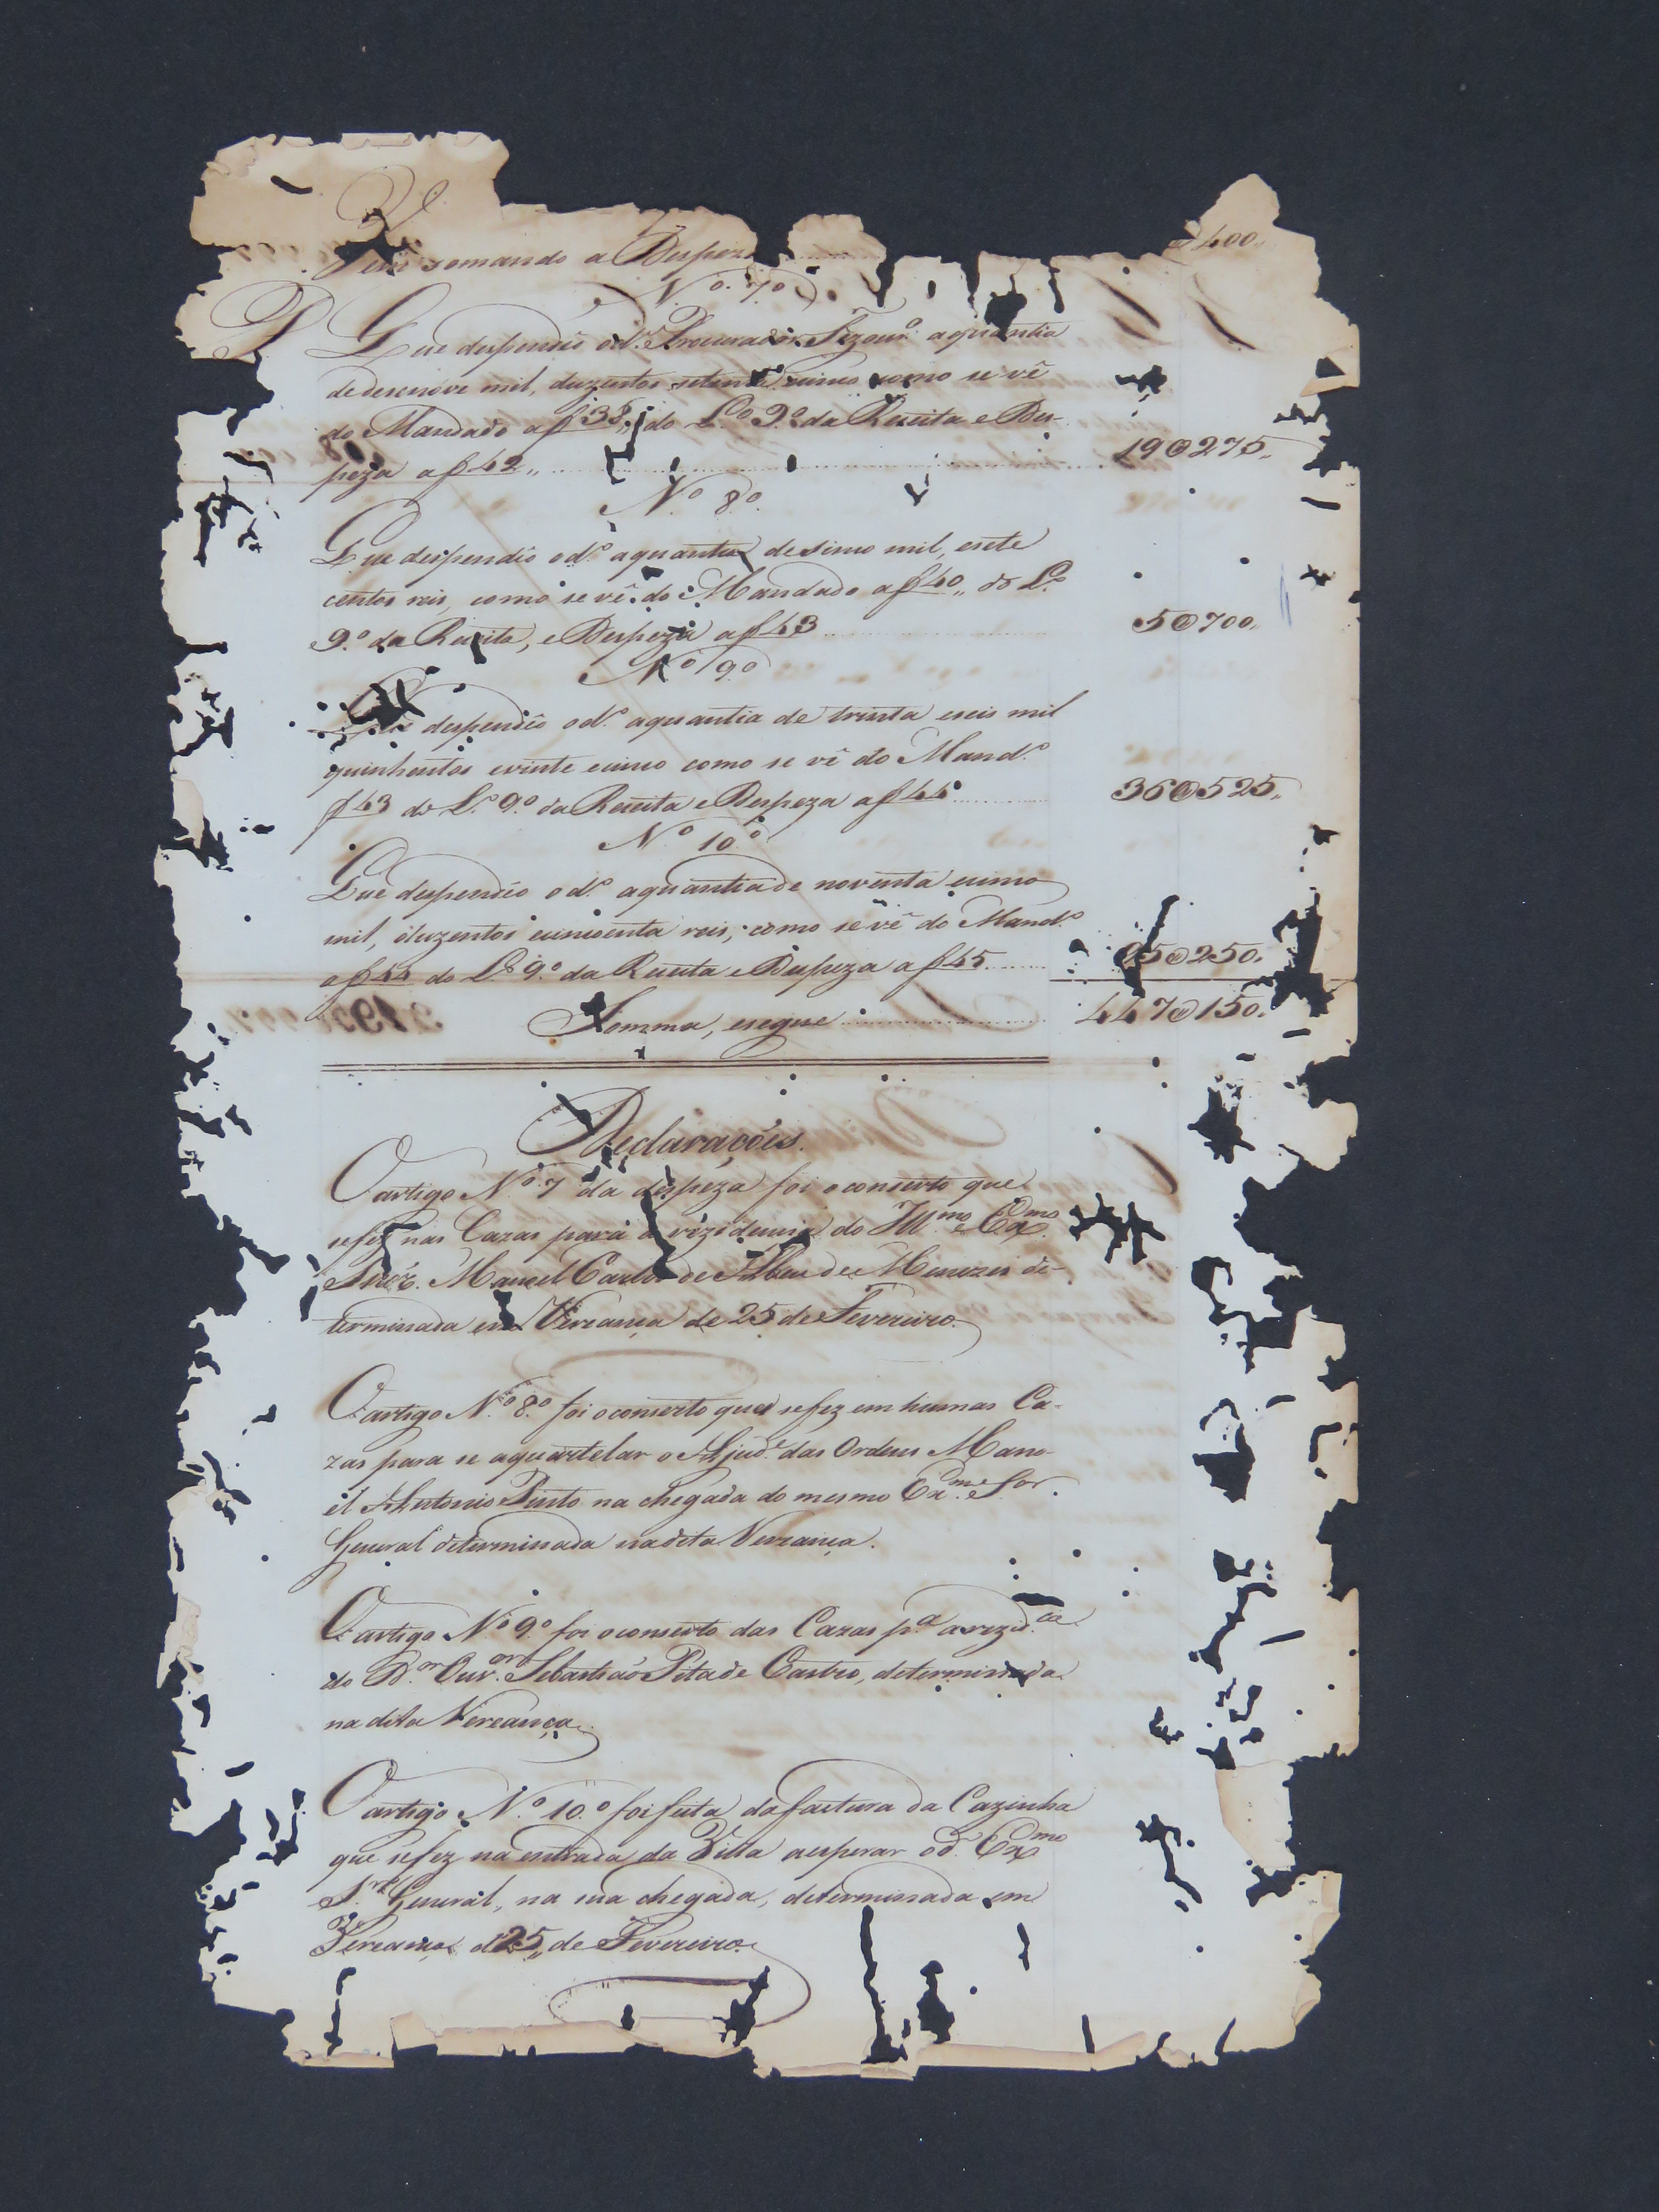 Vem somando a Despeza 400„
N.º 7.º
D Que despendêo o d.º Procurador Tezour.º a quantia
de desenove mil, duzentos setenta e cinco como se vê
do Mandado a f 38„ do L.º 9.º da Receita e Des-
peza a f 42„ 19@275„
N.º 8.º
Que despendêo o d.º a quantia de sinco mil, e sete
centos reis, como se vê do Mandado a f 40„ do L.º
9.º da Receita, e Despeza a f 43 5@700„
N.º 9.º
Que despendêo o d.º a quantia de trinta e seis mil
quinhentos e vinte e cinco como se vê do Mand.º
f 43 do L.º 9.º da Receita e Despeza a f 44 36@525„
N.º 10.º
Que despendêo o d.º a quantia de noventa e cinco
mil, duzentos e cincoenta reis, como se vê do Mand.º
a f 44 do L.º 9.º da Receita e Despeza a f 45 95@250„
Somma, e segue 447@150„
Declarações.
O artigo N.º 7 da despeza foi o conserto que
se fez nas Cazas para a rezidencia do Ill.mo e Ex.mo
Snr. Manoel Carlos de Abreu de Menezes de-
terminada em Vereança de 25 de Fevereiro.
O artigo N.º 8.º foi o conserto que se fez em humas Ca-
zas para se aquartelar o Ajud.e das Ordens Mano-
el Antonio Pinto na chegada do mesmo Ex.mo Sor.
General determinada na dita Vereança.
O artigo N.º 9.º foi o conserto das Cazas p.a a rezid.ca
do D.or Ouv.or Sebastião Pita de Castro, determinada
na dita Vereança.
O artigo N.º 10.º foi feita da factura da Cazinha
que se fez na entrada da Villa a esperar o d. Ex.mo
S.r General„ na sua chegada, determinada em
Vereança de 25„ de Fevereiro.